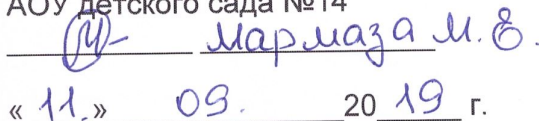 АОУ детского сада №14
Мармаза М. Е.
« 11.» 09. 20 19 г.